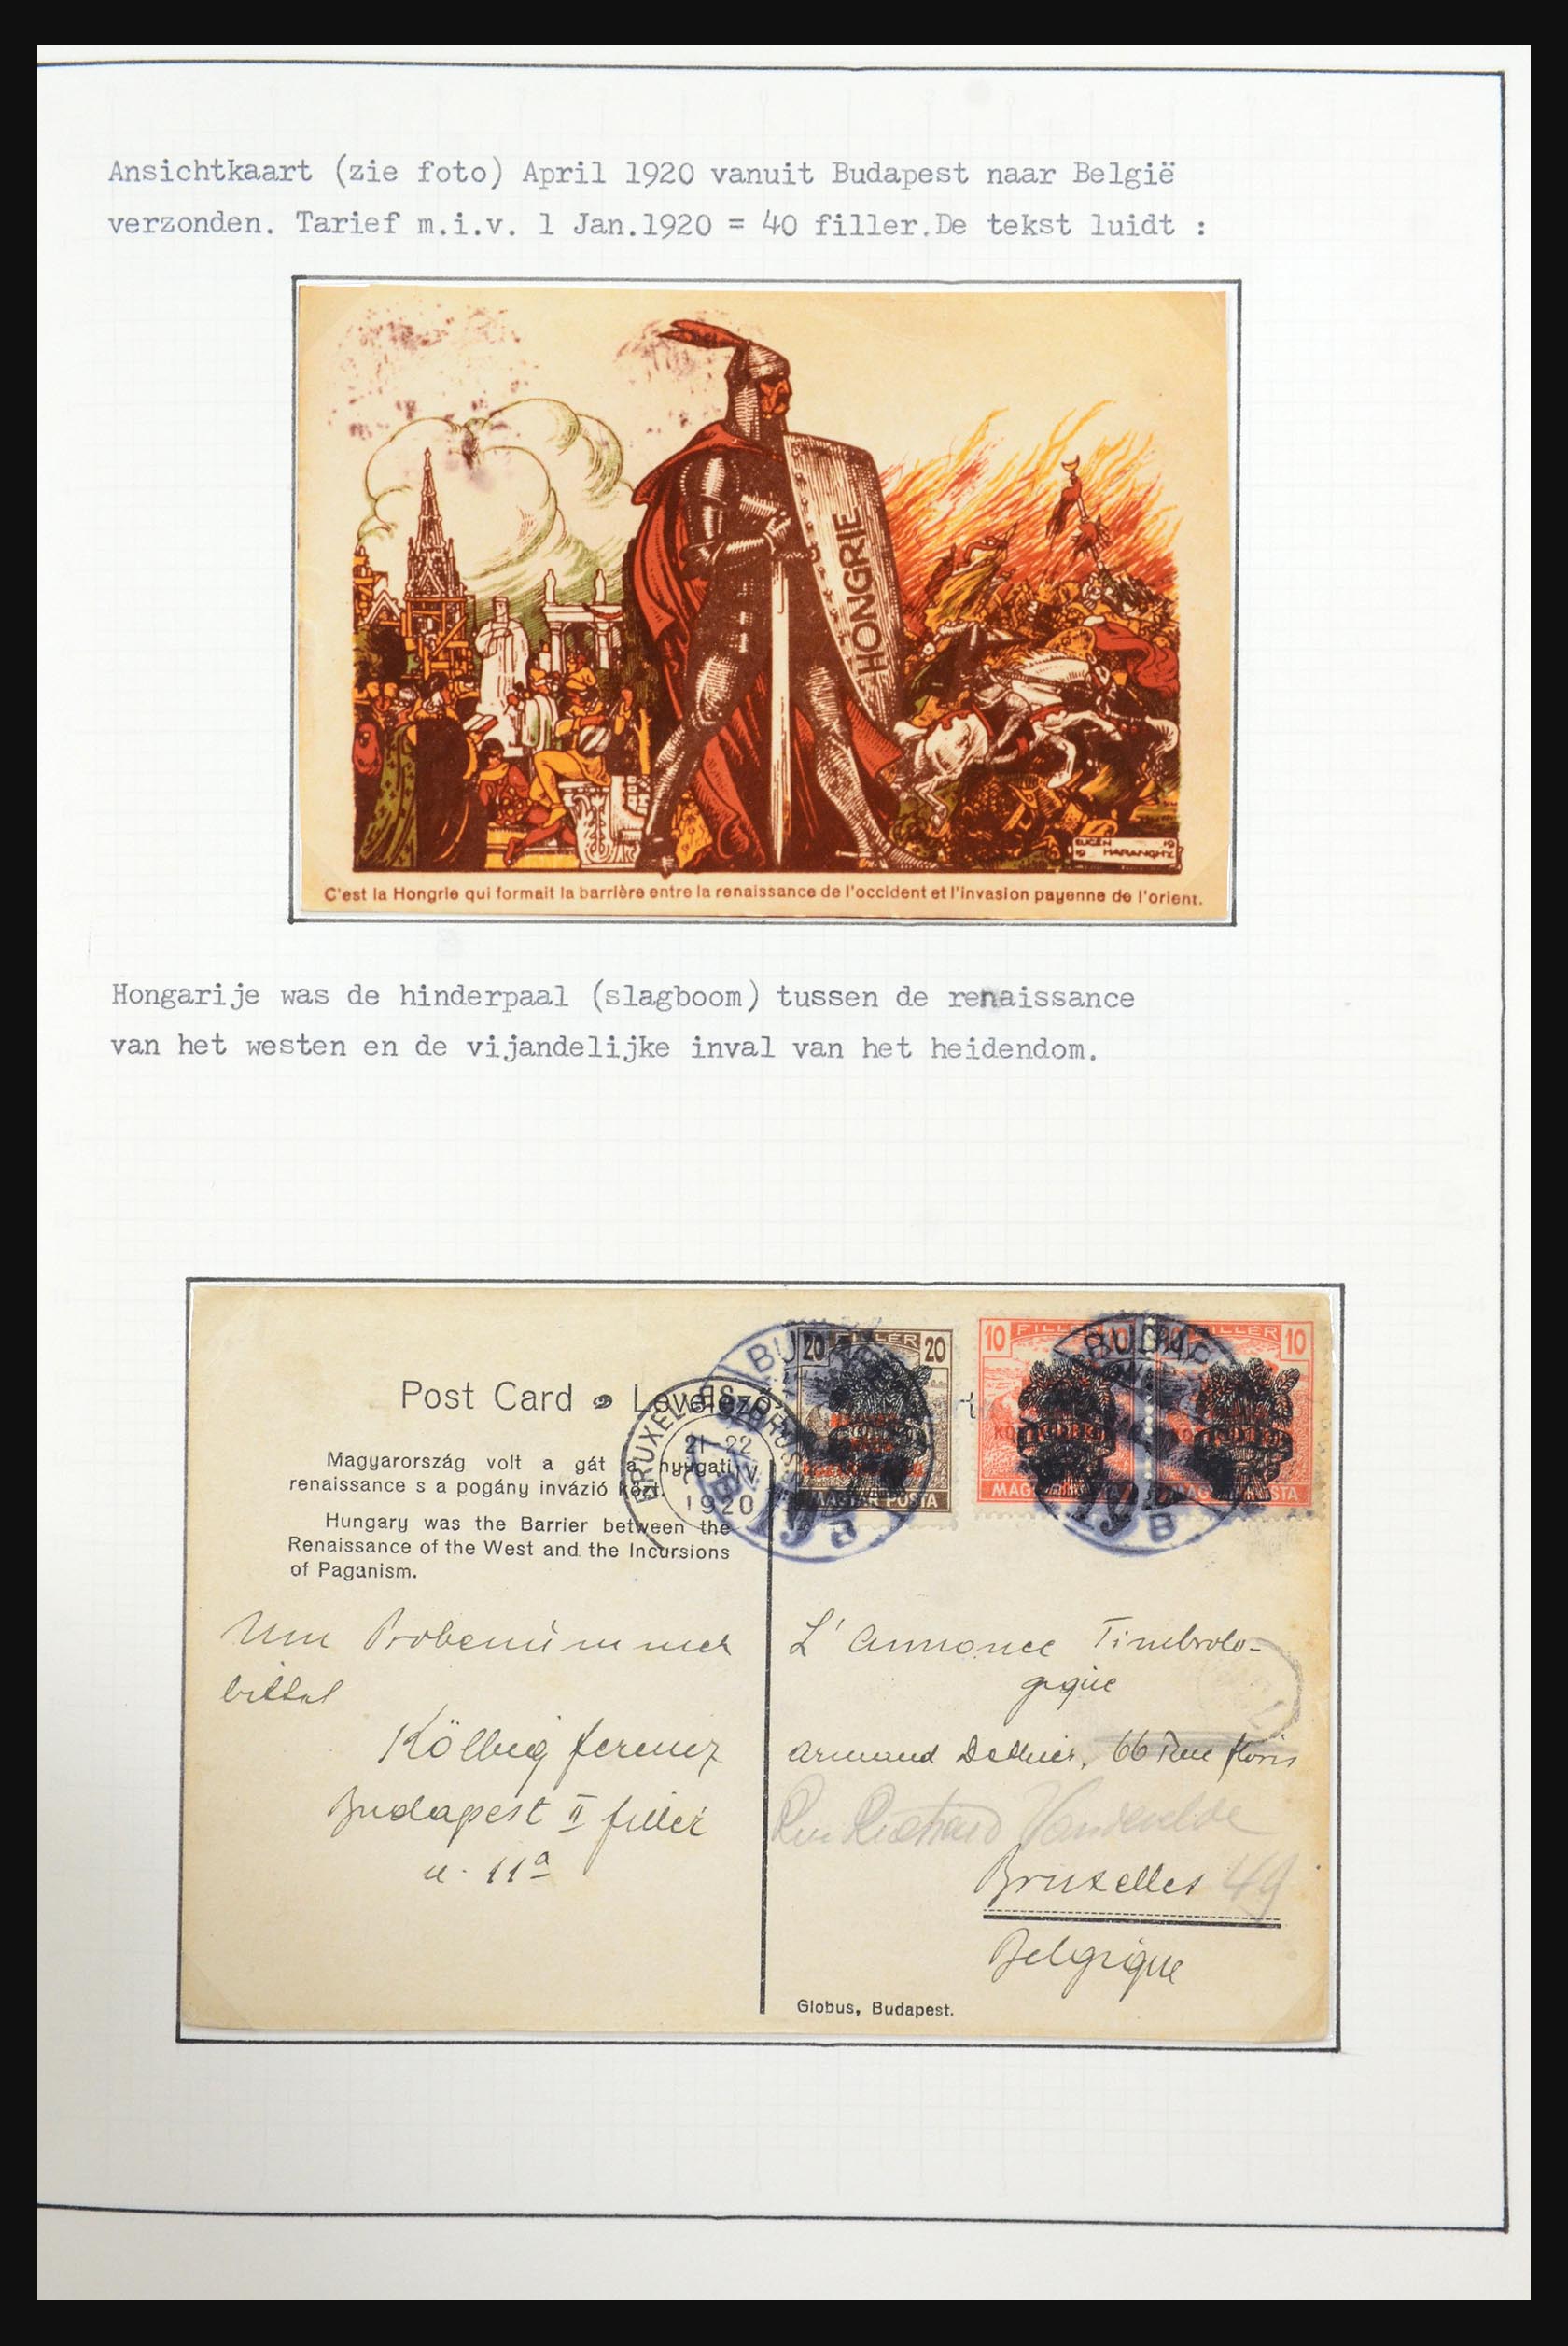 Ansichtkaart (zie foto) April 1920 vanuit Budapest naar België
verzonden. Tarief m.i.v. 1 Jan.1920 = 40 filler.De tekst luidt :
HONGRIE
EUGEN 19
19 HARANGHY
C'est la Hongrie qui formait la barrière entre la renaissance de l'occident et l'invasion payenne de l'orient.
Hongarije was de hinderpaal (slagboom) tussen de renaissance
van het westen en de vijandelijke inval van het heidendom.
20 FILLÉR 20
MAGYAR POSTA
10 FILLÉR
FILLÉR 10
Post Card
BRUXELLES
21-22
IV
1920
Magyarország volt a gát a nyugati
renaissance s a pogány invázió közt.
Hungary was the Barrier between the
Renaissance of the West and the Incursions
of Paganism.
Um Probenummer
bittet
Kölbig Ferencz
Budapest II filler
u. 11a
L'Annonce Timbrolo-
gique
Armand Dethier, 66 Rue Floris
Rue Richard Vandevelde
Bruxelles 49
Belgique
Globus, Budapest.